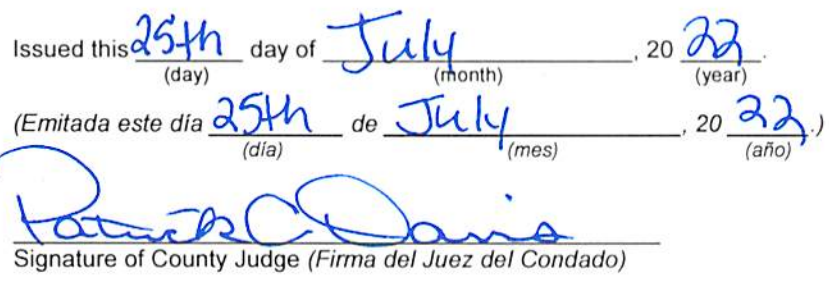 Issued this 25th day of July, 20 22.
(day) (month) (year)
(Emitada este día 25th de July, 20 22.)
(día) (mes) (año)
Patrick C Davis
Signature of County Judge (Firma del Juez del Condado)